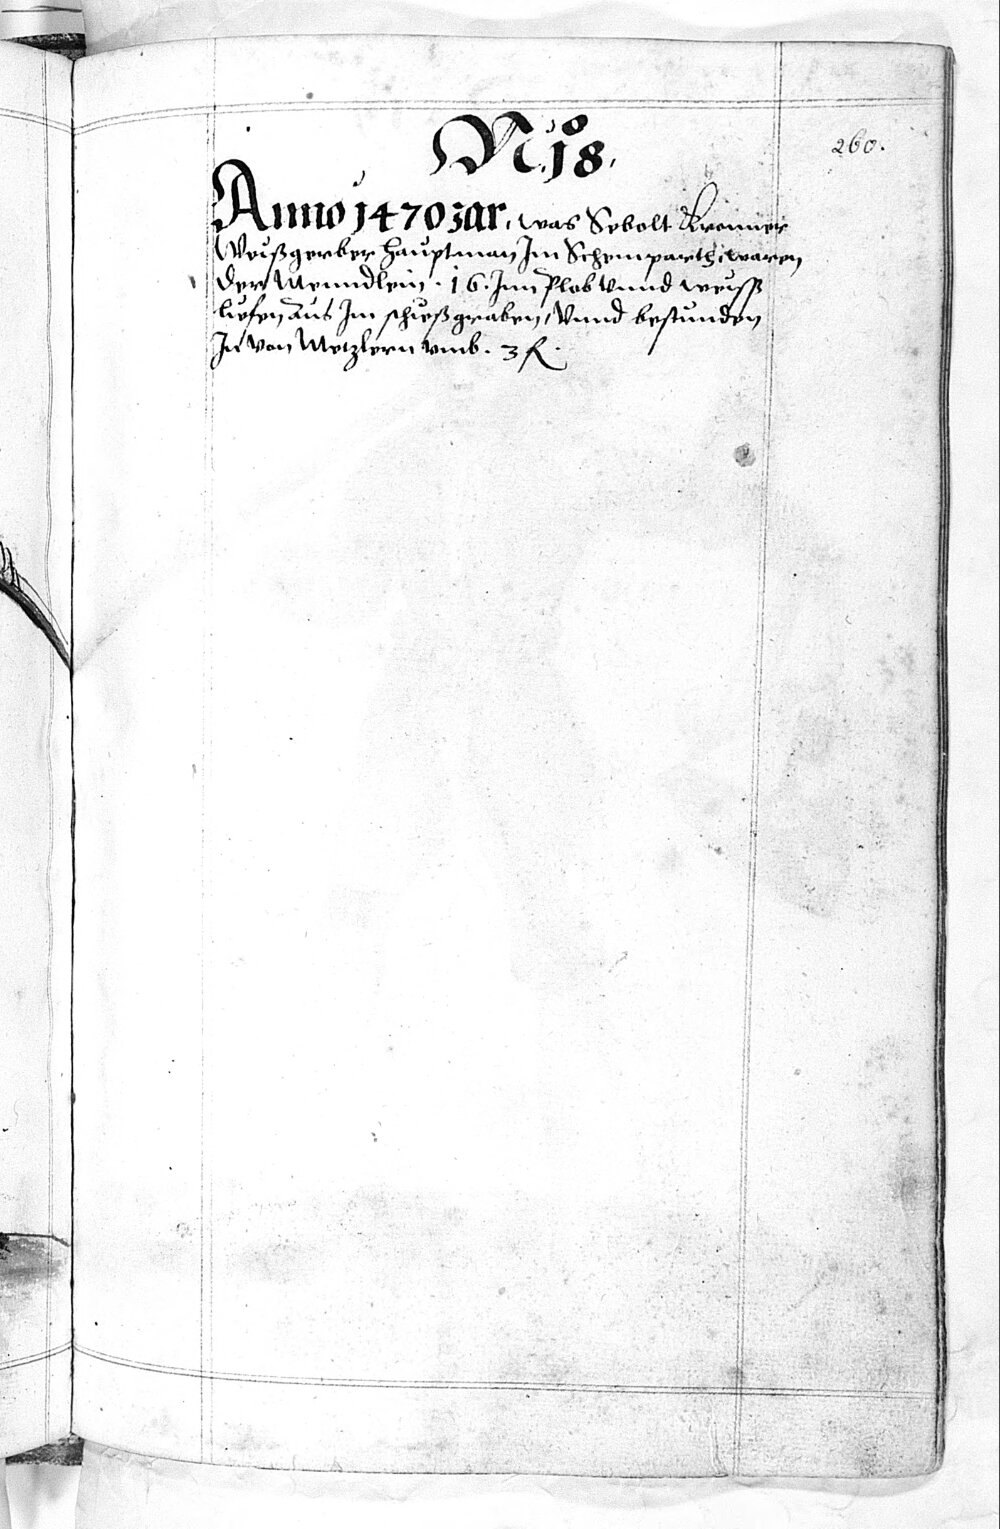 260.
No 18.
Anno 1470 Jar, was Sebolt Kromer
Weißgerber Hauptman Im Schempart, waren
der Menndlein . 16 . Inn Plob Vnnd weiss
liefen aus Im schießgraben, Vnnd bestunden
In von Metzlern vmb . 3 fl .